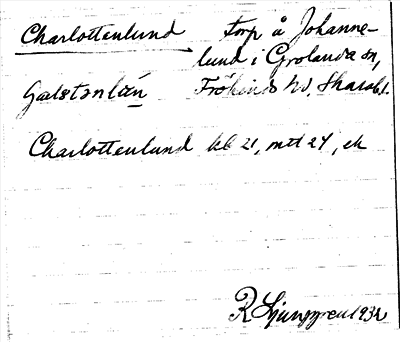 Charlottenlund torp å Johanne-
lund i Grolanda sn,
Frökinds hd, Skarab. l.
Charlottenlund kbl 21, mtl 24, ek
R Ljunggren 1932